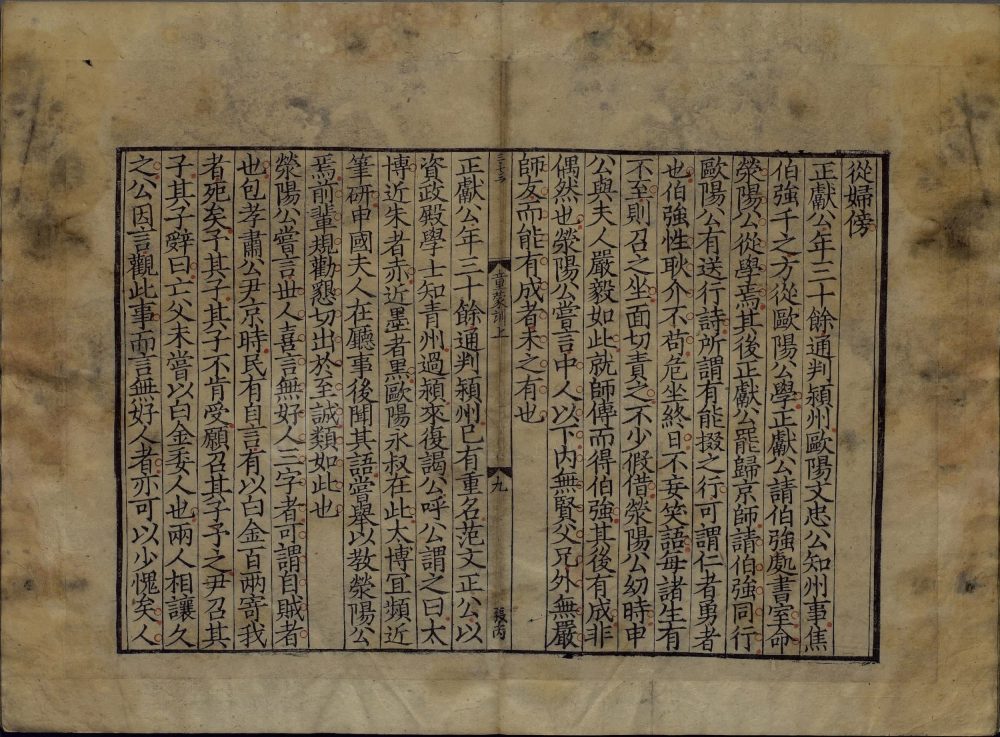 從婦傍
正獻公年三十餘通判潁州歐陽文忠公知州事焦
伯強千之方從歐陽公學正獻公請伯強處書室命
滎陽公從學焉其後正獻公罷歸京師請伯強同行
歐陽公有送行詩所謂有能掇之行可謂仁者勇者
也伯強性耿介不苟危坐終日不妄笑語每諸生有
不至則召之坐面切責之不少假借滎陽公幼時申
公與夫人嚴毅如此就師傅而得伯強其後有成非
偶然也滎陽公嘗言中人以下内無賢父兄外無嚴
師友而能有成者未之有也
童蒙訓上
九
張丙
正獻公年三十餘通判潁州已有重名范文正公以
資政殿學士知青州過潁來復謁公呼公謂之曰太
博近朱者赤近墨者黑歐陽永叔在此太博宜頻近
筆研申國夫人在廳事後聞其語嘗舉以教滎陽公
焉前輩規勸懇切出於至誠類如此也
滎陽公嘗言世人喜言無好人三字者可謂自賊者
也包孝肅公尹京時民有自言有以白金百兩寄我
者死矣予其子其子不肯受願召其子予之尹召其
子其子辭曰亡父未嘗以白金委人也兩人相讓久
之公因言觀此事而言無好人者亦可以少愧矣人